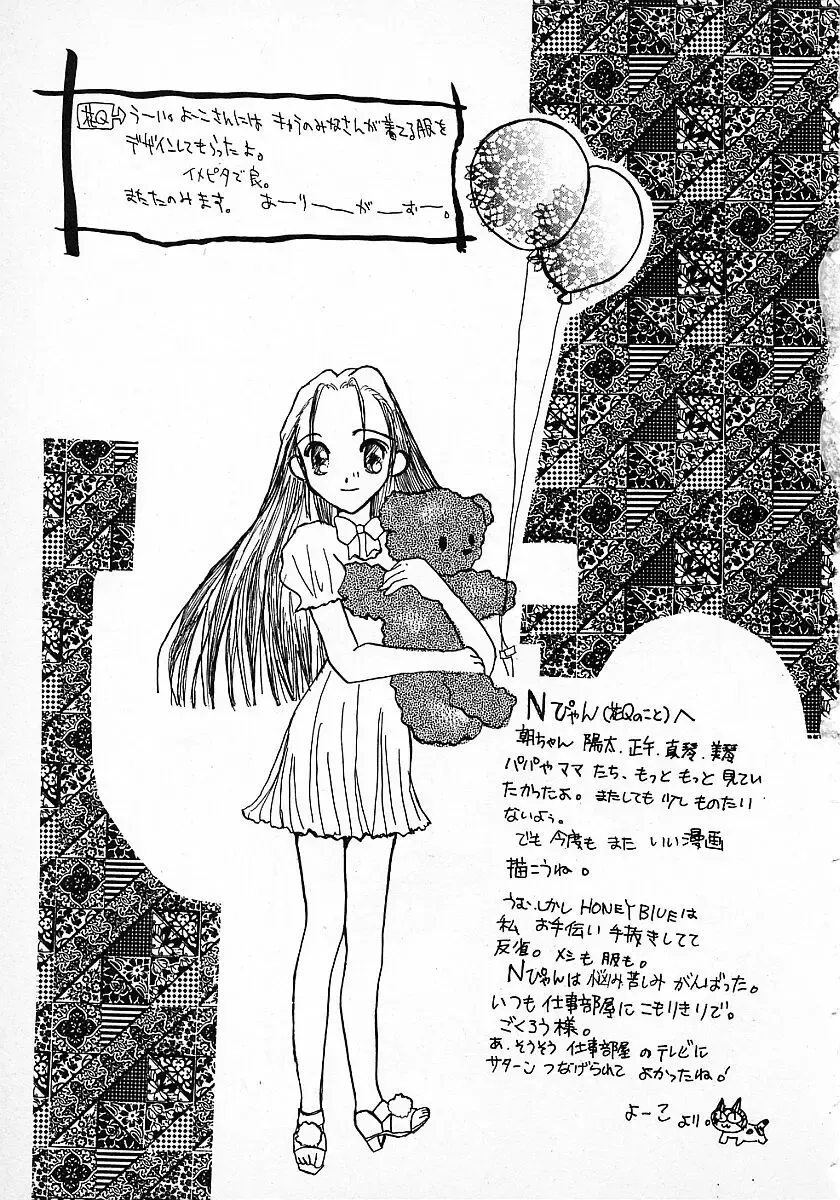 花Q⇨うーい。よーこさんには きゅうのみなさんが着てる服を
デザインしてもらったよ。
イメピタで良。
またたのみます。 おーりーがーむー。
Nぴゃん(花Qのこと)へ
朝ちゃん 陽太、正午、真琴、美琴
パパやママ たち、もっと もっと 見てい
たかったよ。またしても 少し ものたり
ないよぅ。
でも 今度も また いい漫画
描こうね。
うむ、しかし HONEY BLUEは
私 お手伝い 手抜きしてて
反省。メシも 服も。
Nぴゃんは 悩み苦しみ がんばった。
いつも 仕事部屋に こもりきりで。
ごくろう様。
あ、そうそう 仕事部屋 のテレビに
サターン つなげられて よかったね!
よーこ より。